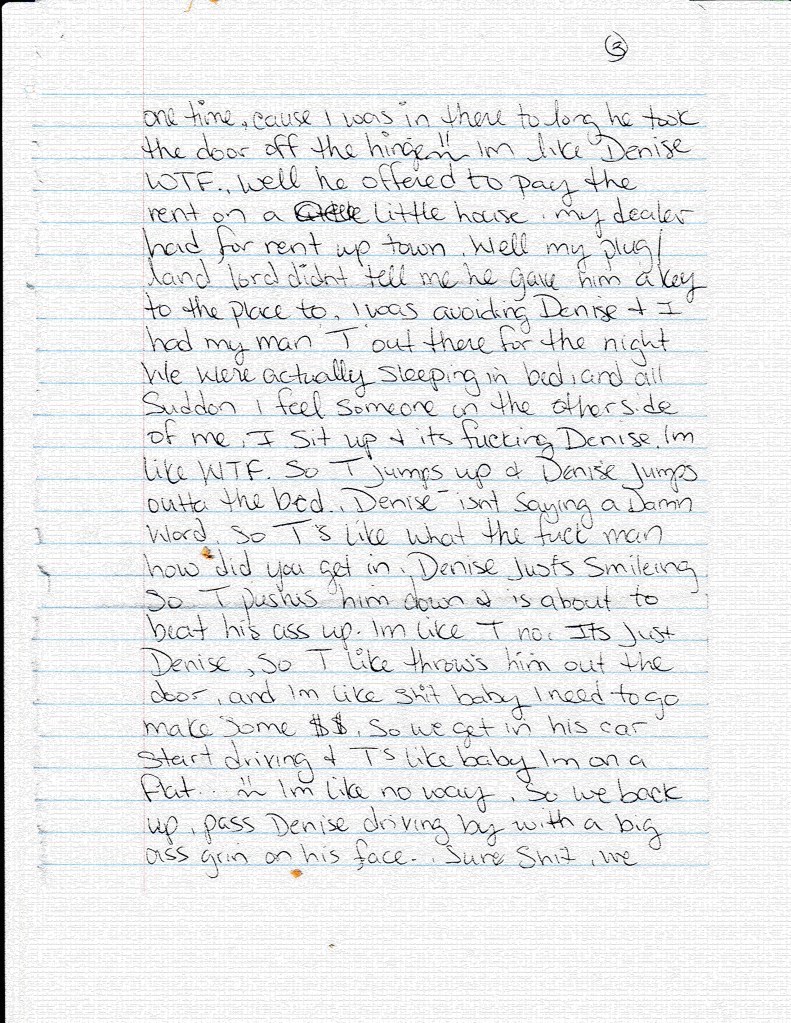 3
one time, cause I was in there to long he took
the door off the hinge!! Im like Denise
WTF.. Well he offered to pay the
rent on a little house. my dealer
had for rent up town. Well my plug/
land lord didnt tell me he gave him a key
to the place to. I was avoiding Denise & I
had my man "T" out there for the night
We were actually sleeping in bed, and all
Suddon I feel someone on the other side
of me. I sit up & its fucking Denise. Im
like WTF. So T jumps up & Denise jumps
outta the bed.. Denise isnt saying a Damn
Word. So T's like what the fuck man
how did you get in. Denise justs smileing
So T pushes him down & is about to
beat his ass up. Im like T no. Its Just
Denise, So T like throws him out the
door, and Im like shit baby I need to go
make some $$. So we get in his car
start driving & T's like baby Im on a
flat... Im like no way. So we back
up, pass Denise driving by with a big
ass grin on his face.. Sure Shit, we